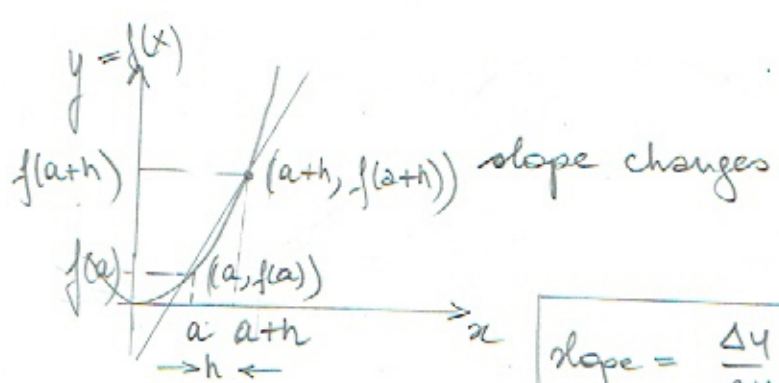 y = f(x)
f(a+h)
(a+h, f(a+h)) slope changes
f(a)
(a, f(a))
a a+h
x
→ h ←
slope = Δy